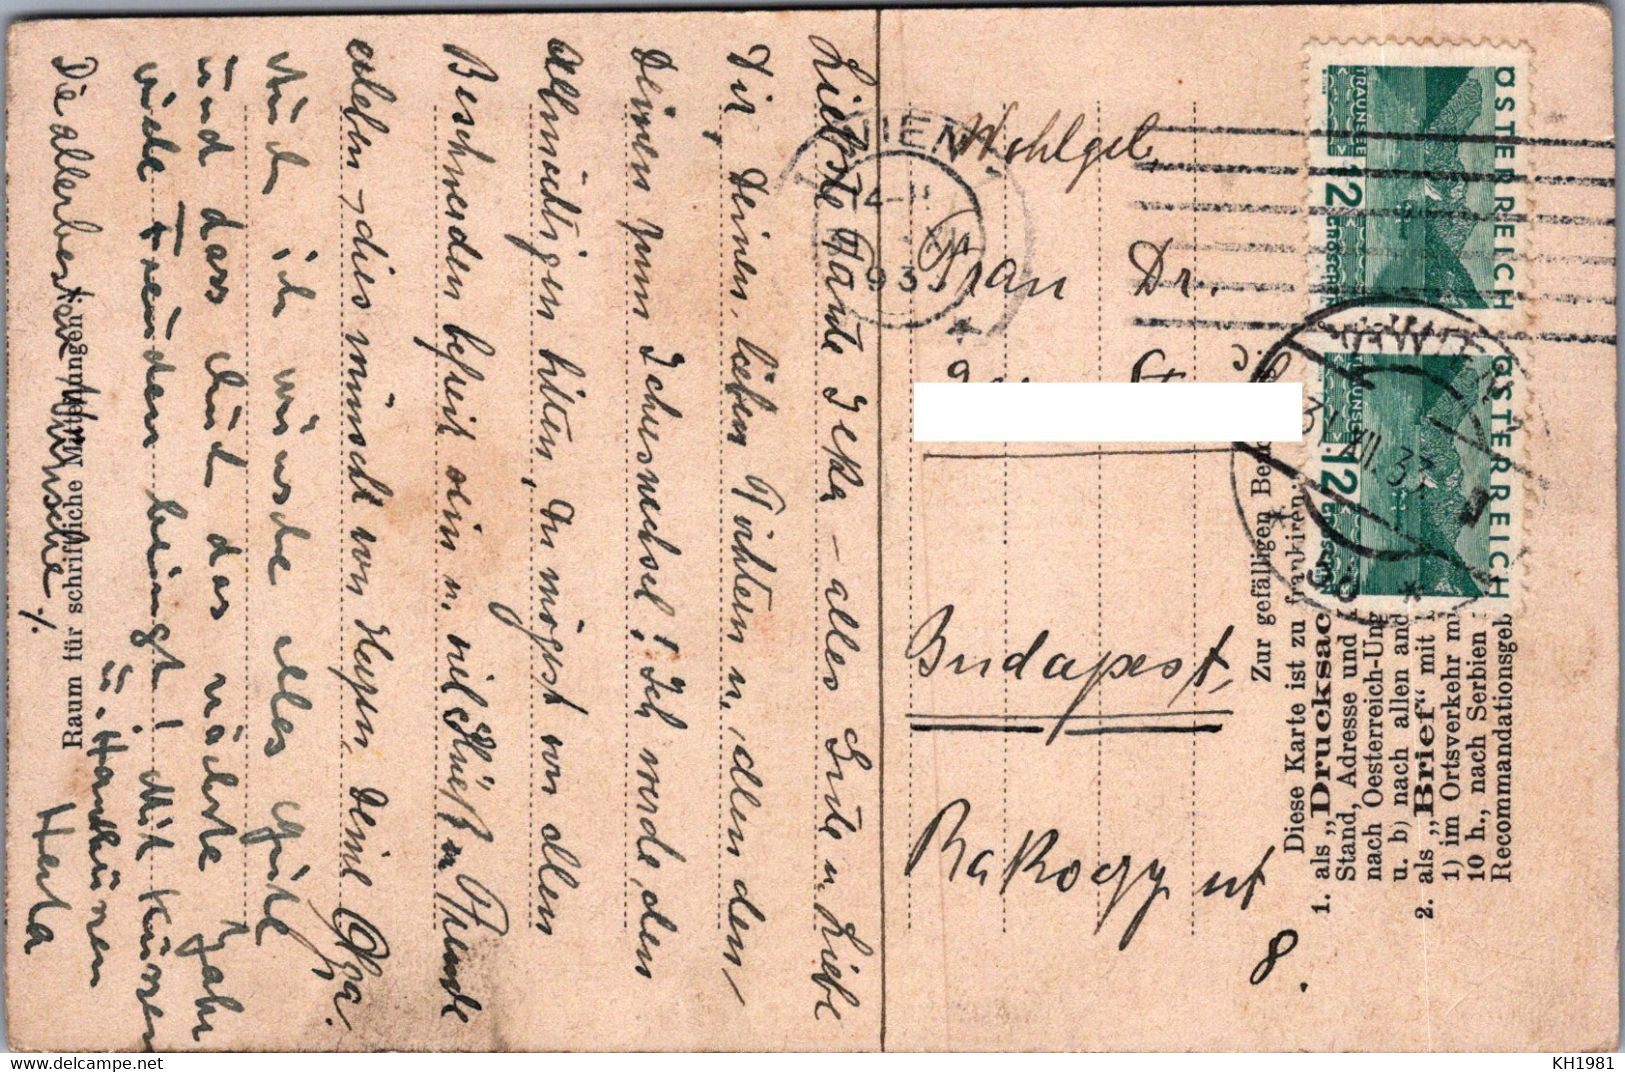 Liebste Tante Jeka – alles Gute u. Liebe
Dir, Deinen lieben Töchtern u. allen den
Deinen zum Jahreswechsel! Ich werde den
Allmächtigen bitten, Du mögest von allen
Beschwerden befreit sein u. viel Glück u. Freude
erleben – dies wünscht von Herzen Deine Olga.
Auch ich wünsche alles Gute
und dass Euch das nächste Jahr
viele Freuden bringt! Mit Küssen
u. Handküssen
Herta
Die allerbesten Wünsche
Raum für schriftliche Mitteilungen
Wohlgeb.
Frau Dr.
Budapest,
Rakoczy ut
8.
WIEN
ÖSTERREICH
TRAUNSEE
12 GROSCHEN
ÖSTERREICH
TRAUNSEE
12 GROSCHEN
31. XII. 33
Zur gefälligen
Diese Karte ist zu frankiren:
1. als „Drucksac
Stand, Adresse und
nach Oesterreich-Ung
u. b) nach allen and
2. als „Brief“ mit
1) im Ortsverkehr m
10 h., nach Serbien
Recommandationsgeb
KH1981